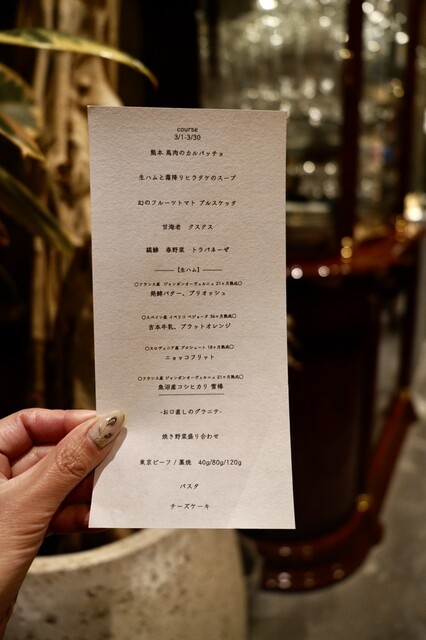 course
3/1-3/30
熊本 馬肉のカルパッチョ
生ハムと霜降りヒラタケのスープ
幻のフルーツトマト ブルスケッタ
甘海老 クスクス
縞鯵 春野菜 トラパネーゼ
【生ハム】
○フランス産 ジャンボンオーヴェルニュ 21ヶ月熟成○
発酵バター、ブリオッシュ
○スペイン産 イベリコ ベジョータ 36ヶ月熟成○
吉本牛乳、ブラッドオレンジ
○スロヴェニア産 プロシュート 18ヶ月熟成○
ニョッコフリット
○フランス産 ジャンボンオーヴェルニュ 21ヶ月熟成○
魚沼産コシヒカリ 雪椿
-お口直しのグラニテ-
焼き野菜盛り合わせ
東京ビーフ / 藁焼 40g/80g/120g
パスタ
チーズケーキ